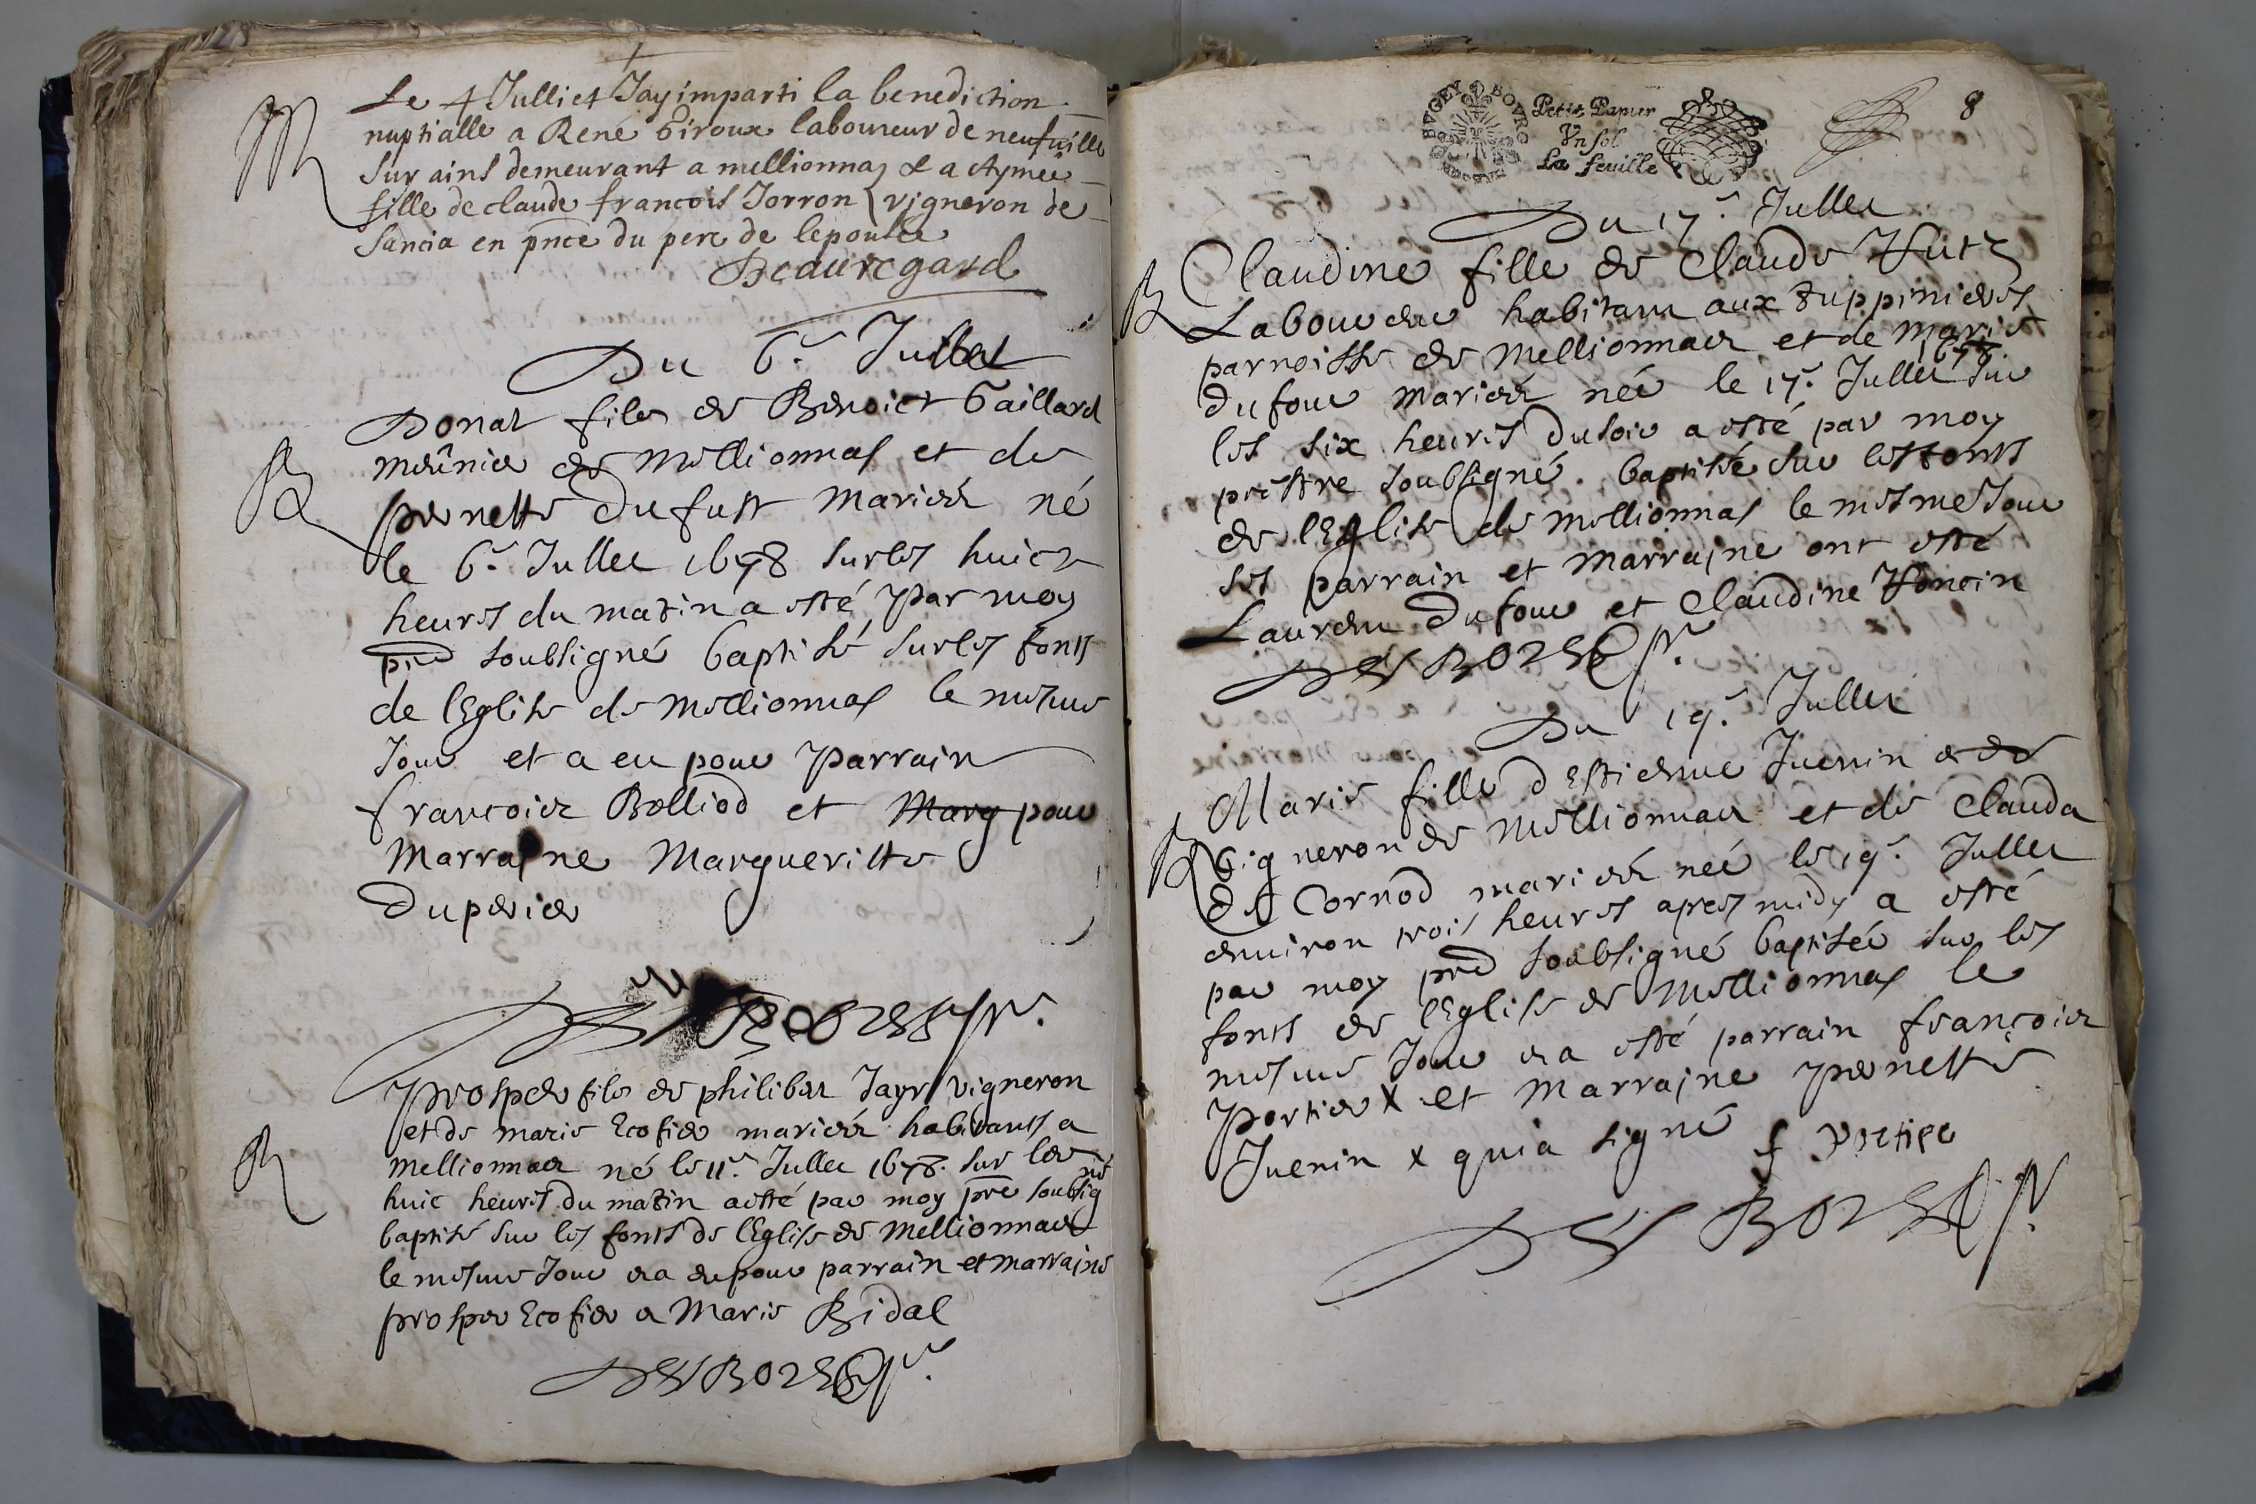 M
Le 4 Julliet Jay imparti la benediction
nuptialle a René Giroux laboureur de neufuille
sur ains demeurant a mellionnaz & a Aymée
fille de claude francois Jorron vigneron de
sancia en pnce du pere de lepousée
Beauregard
Du 6e Juillet
B
Donat fils de Benoict Gaillard
meûnier de Mellionnas et de
pernette Dufust mariéz né
le 6e Jullet 1678 sur les huict
heures du matin a esté par moy
pre soubsigné baptisé sur les fonts
de lEglise de Mellionnas le mesme
Jour et a eu pour Parrain
françois Bolliod et Marg pour
Marrayne Marguerite
Duperier
Des Bores p.
B
Prosper fils de philibert Jayr vigneron
et de marie Ecofier mariéz habitants a
Mellionnaz né le 11e Jullet 1678. sur les
huic heures du matin a esté par moy pre soubsigné
baptisé sur les fonts de lEglise de Mellionnaz
le mesme Jour et a eu pour parrain et marrayne
prosper Ecofier et Marie Bidal
Des Bores p.
BVGEY BOVRG
Petit Papier
Vn sol
La feuille
8
Du 17e Jullet
B
Claudine fille de Claude
Laboureur habitant aux Tuppinieres
parroisse de Mellionnaz et de Marie
dufour mariéz née le 17e Jullet 1678 sur
les six heures du soir a esté par moy
prestre soubsigné. baptisée sur les fonts
de lEglise de Mellionnas le mesme Jour
ses parrain et marrayne ont esté
Laurent Dufour et Claudine
Des Bores p.
Du 19e Jullet
B
Marie fille dEstienne Juenin
vigneron de Mellionnaz et de Clauda
de Cornod mariéz née le 19e Jullet
enuiron trois heures apres midy a esté
par moy pre soubsigné baptisée sur les
fonts de lEglise de Mellionnas le
mesme Jour et a esté parrain françois
Portier x et Marrayne Pernette
Juenin x qui a signé f portier
Des Bores p.